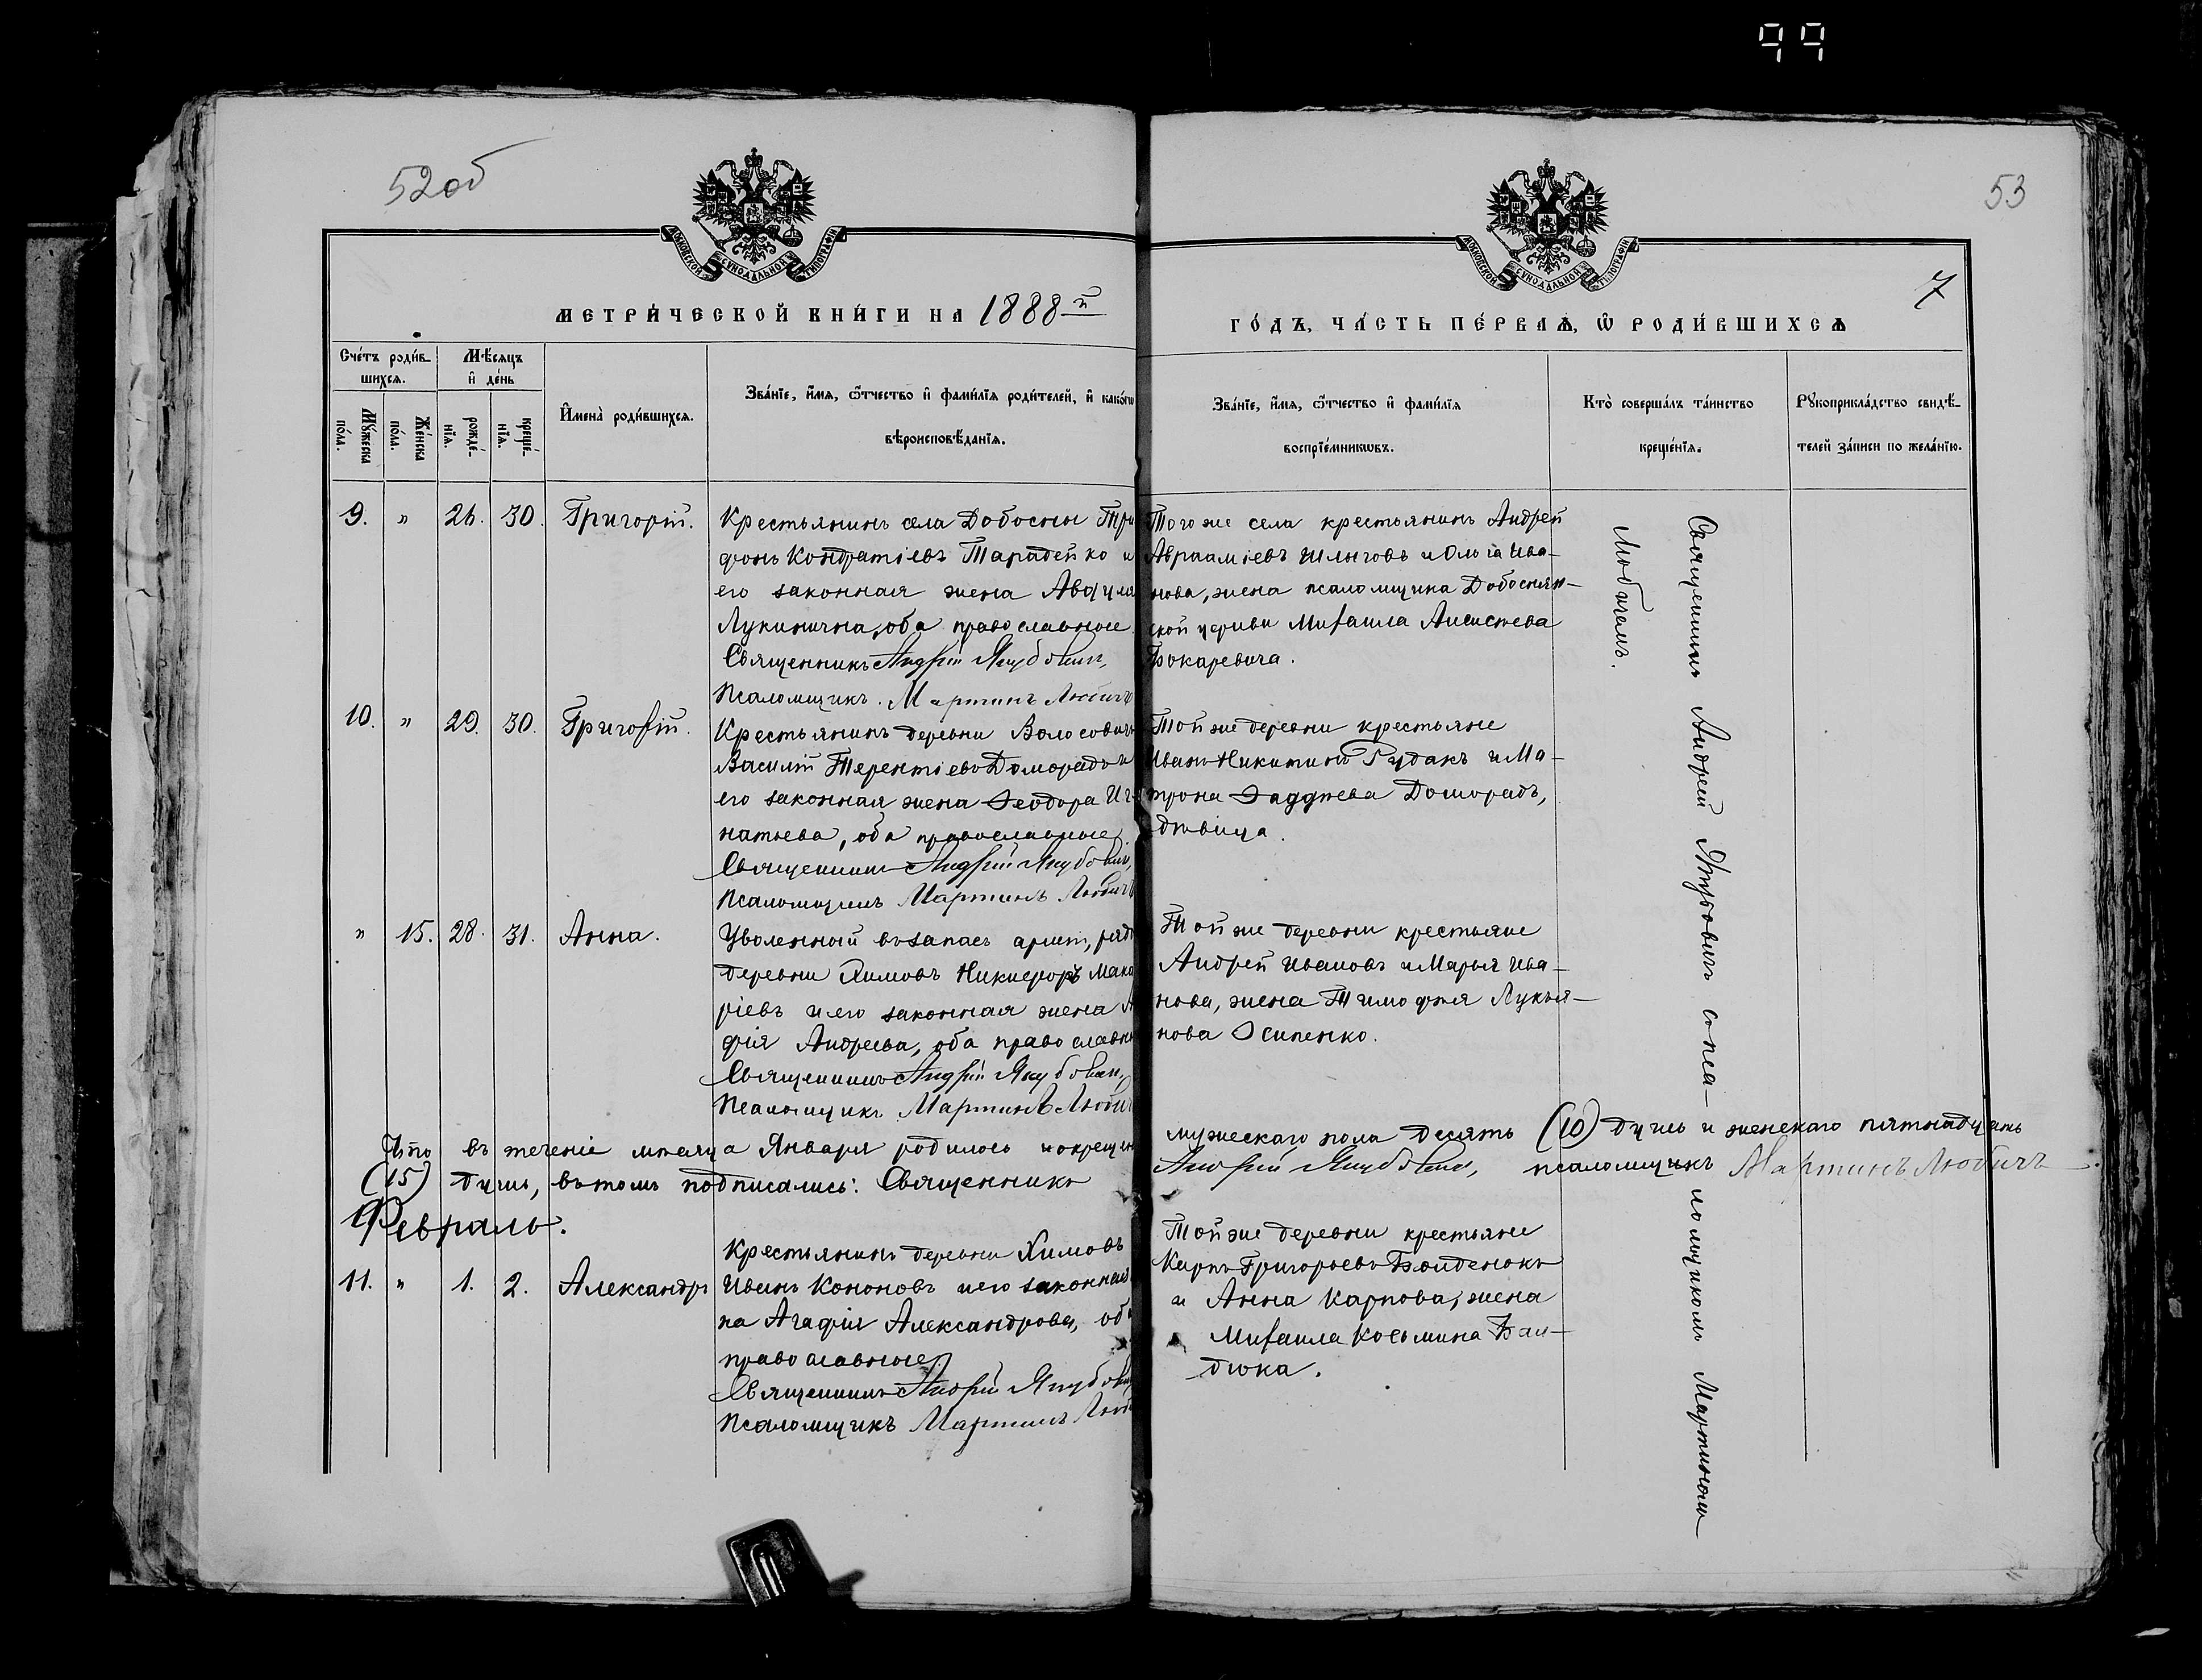 99
52 об
53
7
МОСКОВСКОЙ СѴНОДАЛЬНОЙ ТИПОГРАФІИ
МОСКОВСКОЙ СѴНОДАЛЬНОЙ ТИПОГРАФІИ
МЕТРИ́ЧЕСКОЙ КНИ́ГИ НА 1888й
ГО́ДЪ, ЧА́СТЬ ПЕ́РВАѦ, Ѡ РОДИ́ВШИХСѦ
Сче́тъ роди́в-
шихсѧ.
Мѣ́сѧцъ
и҆ де́нь
Му́жеска
по́ла.
Же́нска
по́ла.
рожде́-
нїѧ.
креще́-
нїѧ.
И҆мена̀ роди́вшихсѧ.
Зва́нїе, и҆́мѧ, ѻ҆́тчество и҆ фами́лїѧ роди́телей, и҆ како́гѡ
вѣроисповѣ́данїѧ.
Зва́нїе, и҆́мѧ, ѻ҆́тчество и҆ фами́лїѧ
воспрїе́мникѡвъ.
Кто̀ соверша́лъ та́инство
креще́нїѧ.
Рꙋкоприкла́дство свидѣ́-
телей за́писи по жела́нїю.
9. " 26. 30. Григорій.
Крестьянинъ села Добосны Три
фонъ Кондратіевъ Тарадейко и
его законная жена Авдула
Лукинична, оба православные
Священникъ Андрей Якубович,
Псаломщикъ. Мартинъ Любичъ
Того же села крестьянинъ Андрей
Авраамiевъ Шлыговъ и Ольга Ива-
нова, жена псаломщика Добоснян-
ской церкви Михаила
Бокаревича.
10. " 29. 30. Григорій.
Крестьянинъ деревни Волосовичъ
Василій Терентіевъ Доморадъ и
его законная жена Ѳеодора Иг-
натьева, оба православные
Священникъ Андрей Якубович,
Псаломщикъ Мартинъ Любичъ
Той же деревни крестьяне
Иванъ Никитинъ Рудакъ и Ма-
трона Ѳаддѣева Доморадъ,
дѣвица.
" 15. 28. 31. Анна.
Уволенный въ запасъ арміи, ряд
деревни Химовъ Никифоръ Мака
ріевъ и его законная жена А
фія Андреева, оба православн
Священникъ Андрей Якубович,
Псаломщикъ Мартинъ Люби
Той же деревни крестьяне
Андрей Ивановъ и Марья Ива-
нова, жена Тимофѣя Лукья-
нова Осипенко.
Итого въ теченіе мѣсяца Января родилось и окрещено мужескаго пола десять (10) душъ и женскаго пятнадцать
(15) душъ, въ томъ подписались: Священникъ Андрей Якубович, псаломщикъ Мартинъ Любичъ
Февраль.
11. " 1. 2. Александръ
Крестьянинъ деревни Химовъ
Иванъ Кононовъ и его законная
на Агафія Александрова, оба
православные
Священникъ Андрей Якубович
Псаломщикъ Мартинъ Люб
Той же деревни крестьяне
Карпъ Григорьевъ Бойденокъ
и Анна Карпова, жена
Михаила Косьмина Бай-
дюка.
Священникъ Андрей Якубовичъ со пса-
ломщикомъ Мартиномъ
Любичемъ.